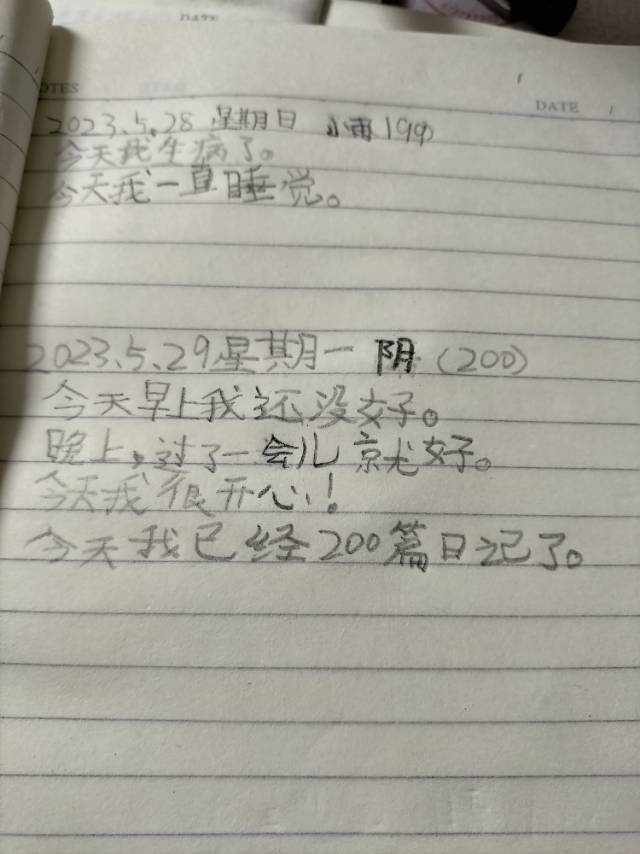 DATE
NOTES
DATE
2023.5.28 星期日 小雨 199
今天我生病了。
今天我一直睡觉。
2023.5.29星期一 阴 (200)
今天早上我还没好。
晚上,过了一会儿就好。
今天我很开心!
今天我已经200篇日记了。